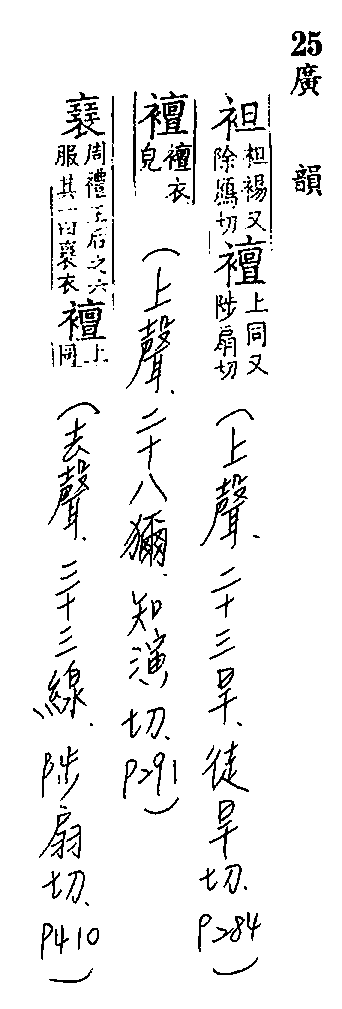 25廣韻
袒袒裼又除鴈切襢上同又陟扇切(上聲、二十三旱、徒旱切、P284)
襢襢衣皃(上聲、二十八獮、知演切、P291)
襄周禮王后之六服其一曰襄衣襢上同(去聲、三十三線、陟扇切、P410)